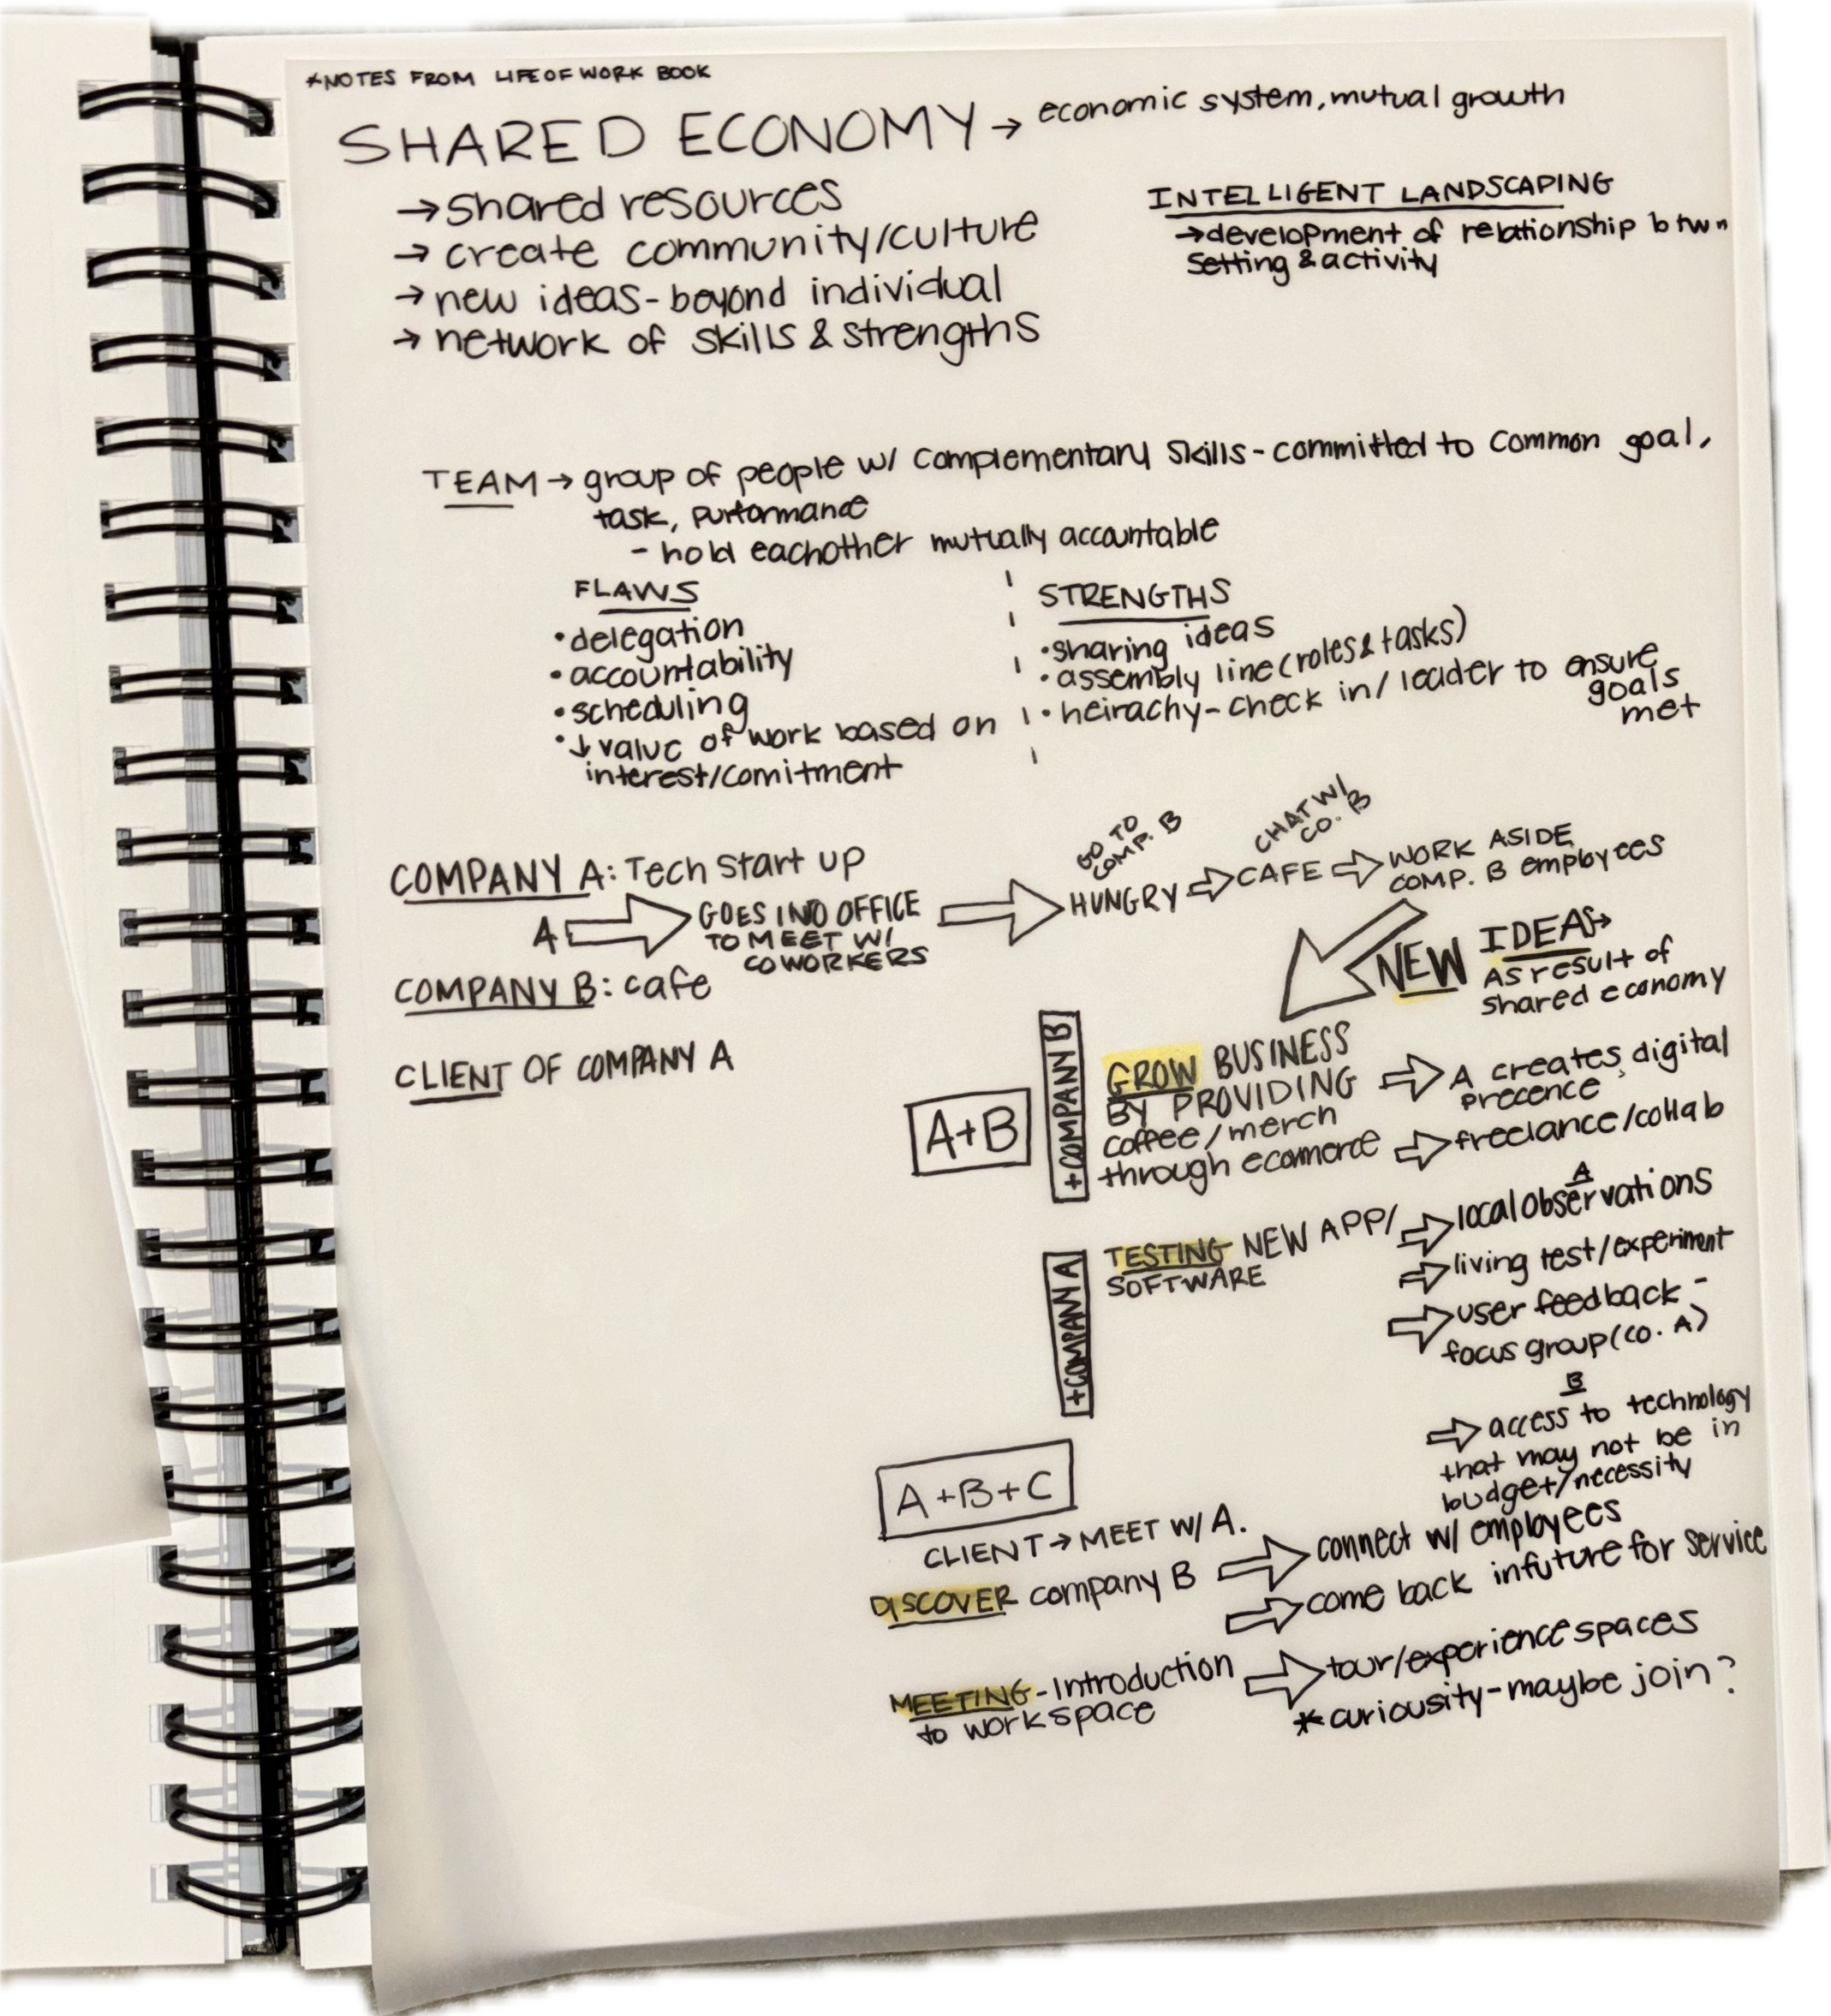 *NOTES FROM LIFE OF WORK BOOK
SHARED ECONOMY → economic system, mutual growth
→ shared resources
→ create community/culture
→ new ideas - beyond individual
→ network of skills & strengths
INTELLIGENT LANDSCAPING
→ development of relationship btwn
setting & activity
TEAM → group of people w/ complementary skills - committed to common goal,
task, purformance
- hold eachother mutually accountable
FLAWS
• delegation
• accountability
• scheduling
• ↓ value of work based on
interest/comitment
STRENGTHS
• sharing ideas
• assembly line (roles & tasks)
• heirachy - check in/leader to ensure
goals
met
COMPANY A: Tech start up
A ⇒ GOES INTO OFFICE
TO MEET W/
COWORKERS
⇒ HUNGRY ⇒ CAFE ⇒ WORK ASIDE
COMP. B employees
GO TO
COMP. B
CHAT W/
CO. B
COMPANY B: cafe
CLIENT OF COMPANY A
NEW IDEAS →
As result of
shared economy
A+B
+COMPANY B
GROW BUSINESS
BY PROVIDING
coffee/merch
through ecommerce
⇒ A creates digital
precence
⇒ freelance/collab
+COMPANY A
TESTING NEW APP/
SOFTWARE
A
⇒ local observations
⇒ living test/experiment
⇒ user feedback -
focus group (co. A)
B
⇒ access to technology
that may not be in
budget/necessity
A+B+C
CLIENT → MEET W/ A.
DISCOVER company B
⇒ connect w/ employees
⇒ come back in future for service
MEETING - Introduction
to workspace
⇒ tour/experience spaces
* curiousity - maybe join?